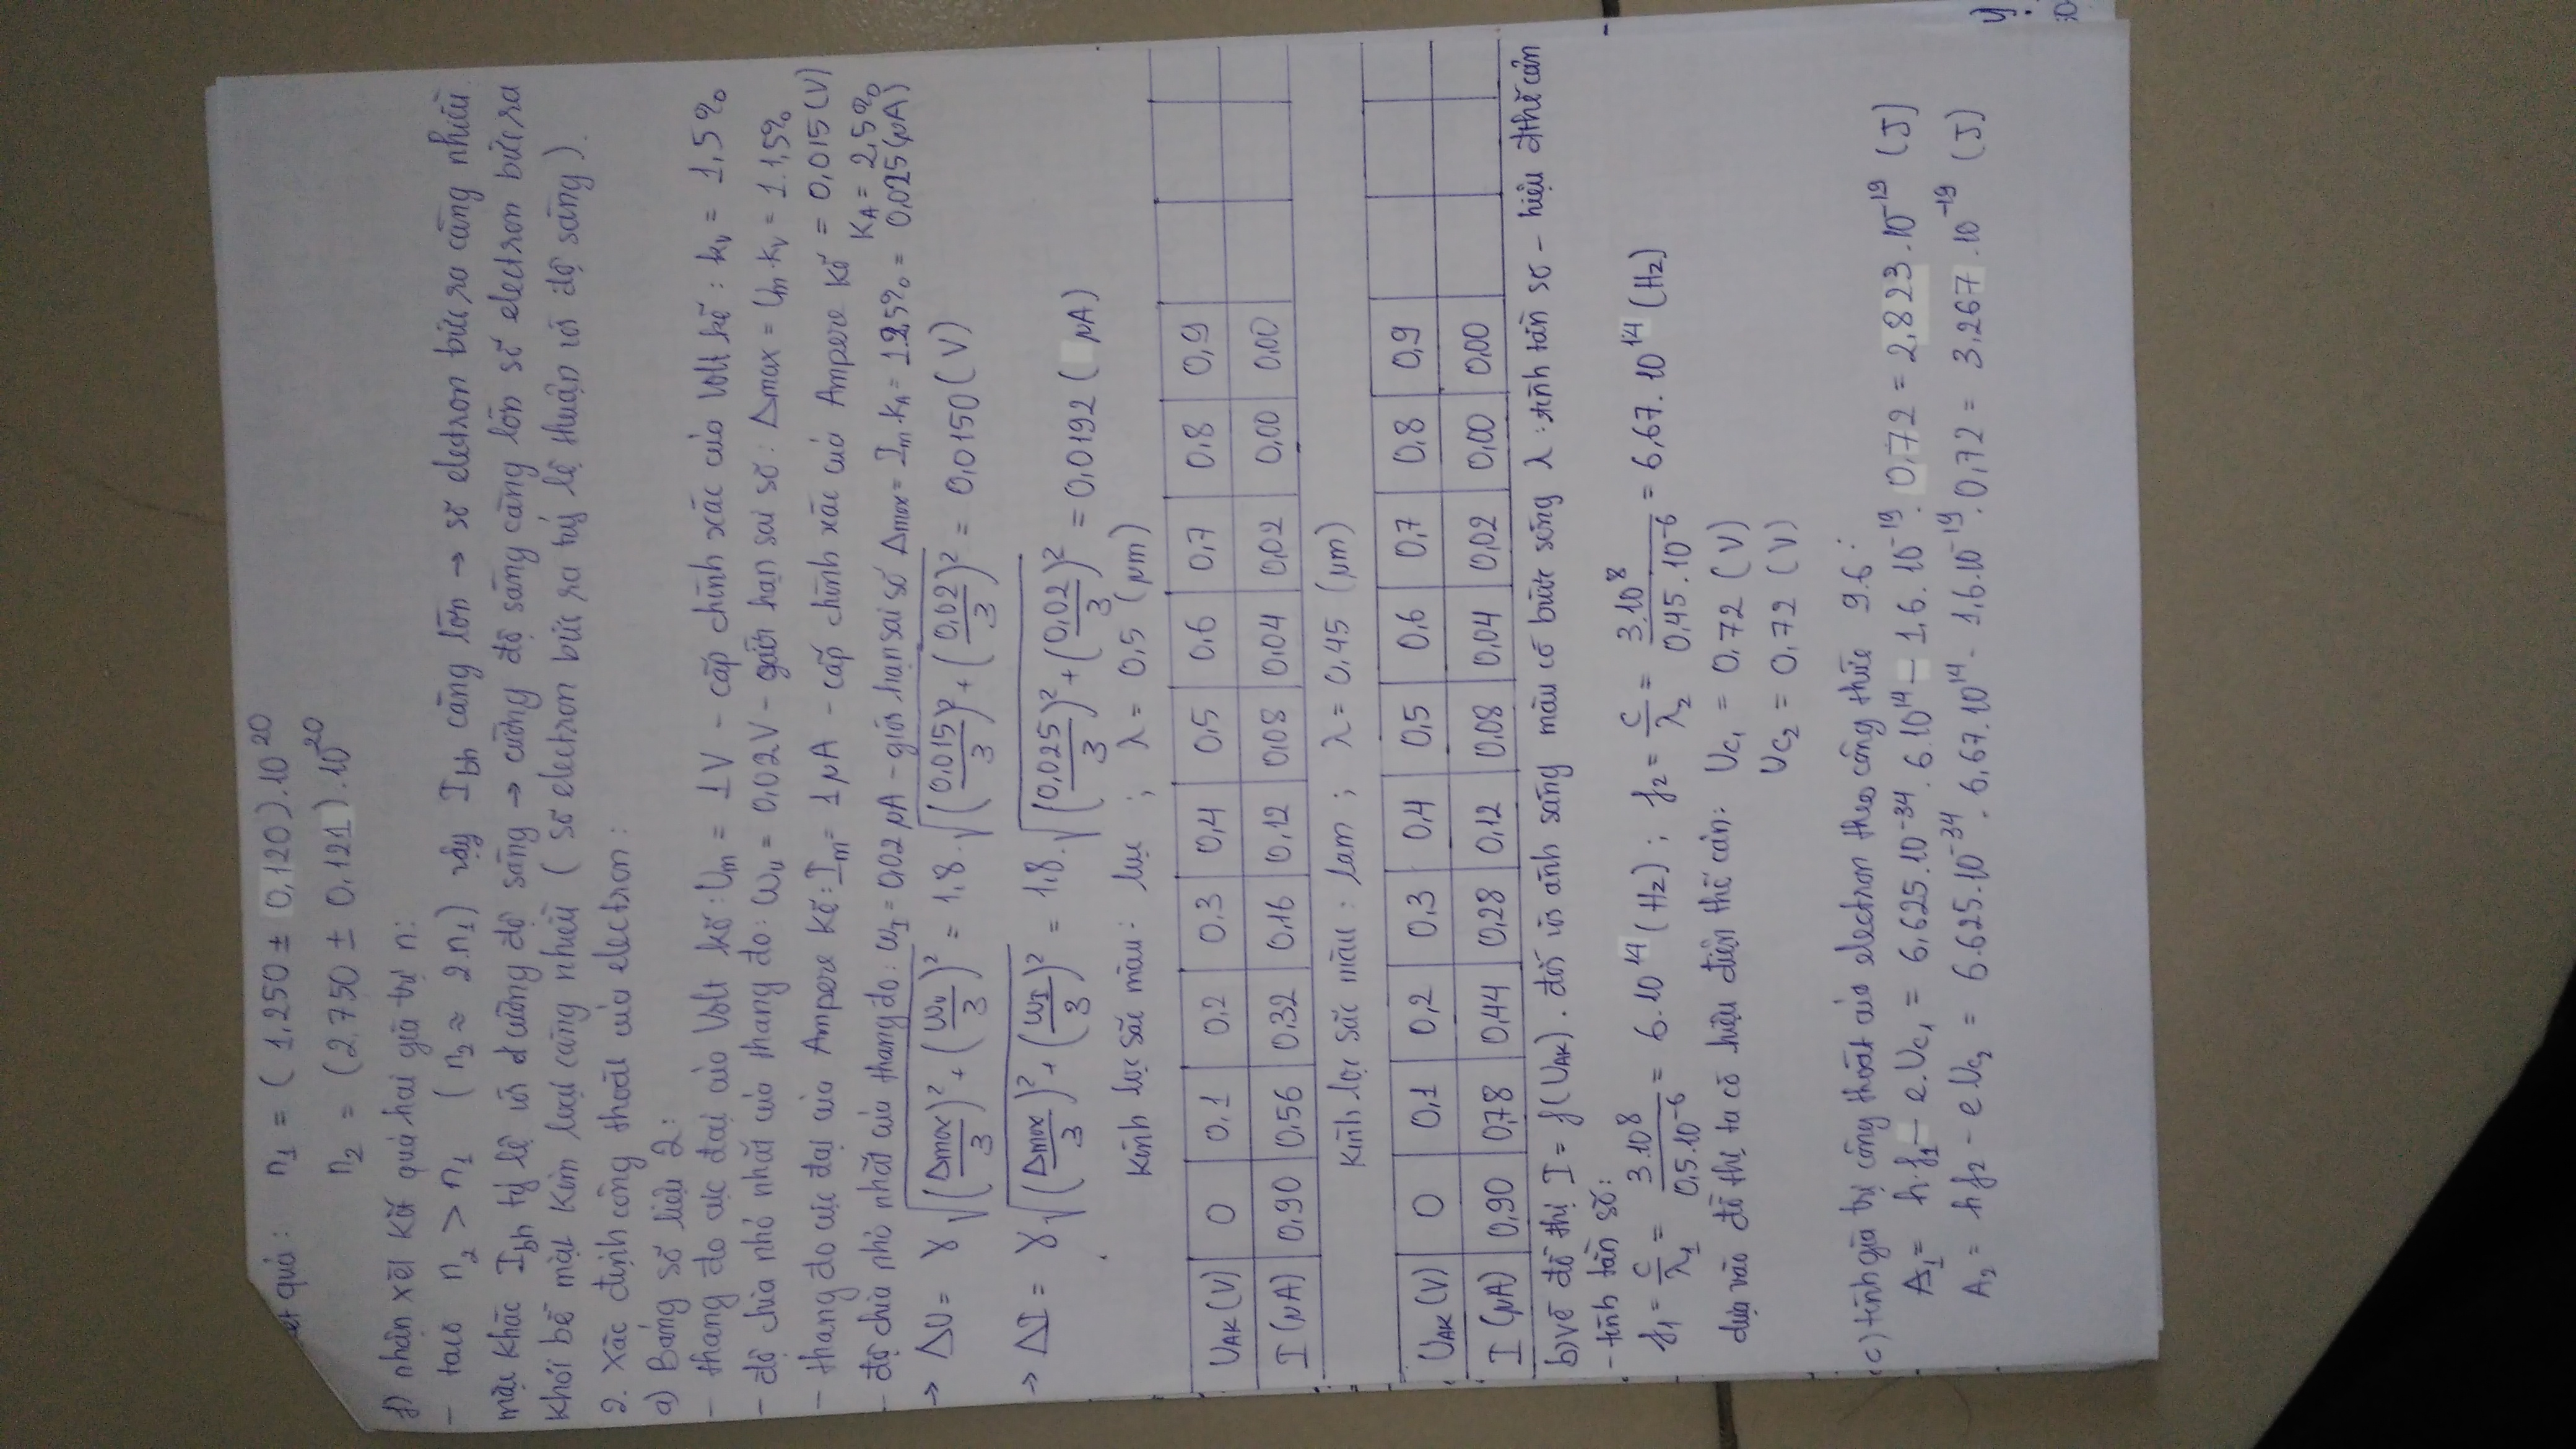 quả: n₁ = ( 1,250 ± 0,120).10²⁰
n₂ = (2,750 ± 0,121).10²⁰
f) nhận xét kết quả hai giá trị n:
- ta có n₂ > n₁ (n₂ ≈ 2.n₁) vậy Ibh càng lớn → số electron bức ra càng nhiều
mặc khác Ibh tỷ lệ với cường độ sáng → cường độ sáng càng lớn số electron bức ra
khỏi bề mặt kim loại càng nhiều ( số electron bức ra tỷ lệ thuận với độ sáng).
2. Xác định công thoát của electron:
a) Bảng số liệu 2:
- thang đo cực đại của Volt kế: Um = 1V - cấp chính xác của Volt kế: kv = 1,5%
- độ chia nhỏ nhất của thang đo: ωu = 0,02V - giới hạn sai số: Δmax = Um.kv = 1.1,5%
= 0,015(V)
- thang đo cực đại của Ampere kế: Im = 1 μA - cấp chính xác của Ampere kế
KA = 2,5%
- độ chia nhỏ nhất của thang đo: ωI = 0,02 μA - giới hạn sai số Δmax = Im.kA = 1.2,5% = 0,025(μA)
→ ΔU = γ√((Δmax/3)² + (ωu/3)²) = 1,8.√((0,015/3)² + (0,02/3)²) = 0,0150(V)
→ ΔI = γ√((Δmax/3)² + (ωI/3)²) = 1,8.√((0,025/3)² + (0,02/3)²) = 0,0192( μA)
Kính lọc sắc màu: lục ; λ = 0,5 (μm)
UAK(V) 0 0,1 0,2 0,3 0,4 0,5 0,6 0,7 0,8 0,9
I(μA) 0,90 0,56 0,32 0,16 0,12 0,08 0,04 0,02 0,00 0,00
Kính lọc sắc màu: lam ; λ = 0,45 (μm)
UAK(V) 0 0,1 0,2 0,3 0,4 0,5 0,6 0,7 0,8 0,9
I(μA) 0,90 0,78 0,44 0,28 0,12 0,08 0,04 0,02 0,00 0,00
b) vẽ đồ thị I = f(UAK). đối với ánh sáng màu có bước sóng λ: tính tần số - hiệu đthế cản
- tính tần số:
f₁ = c/λ₁ = 3.10⁸/0,5.10⁻⁶ = 6.10¹⁴ (Hz) ; f₂ = c/λ₂ = 3.10⁸/0,45.10⁻⁶ = 6,67.10¹⁴ (Hz)
dựa vào đồ thị ta có hiệu điện thế cản: Uc₁ = 0,72 (V)
Uc₂ = 0,72 (V)
c) tính giá trị công thoát của electron theo công thức 9.6:
A₁ = h.f₁ - e.Uc₁ = 6,625.10⁻³⁴.6.10¹⁴ - 1,6.10⁻¹⁹.0,72 = 2,823.10⁻¹⁹ (J)
A₂ = hf₂ - e.Uc₂ = 6.625.10⁻³⁴.6,67.10¹⁴ - 1,6.10⁻¹⁹.0,72 = 3,267.10⁻¹⁹ (J)